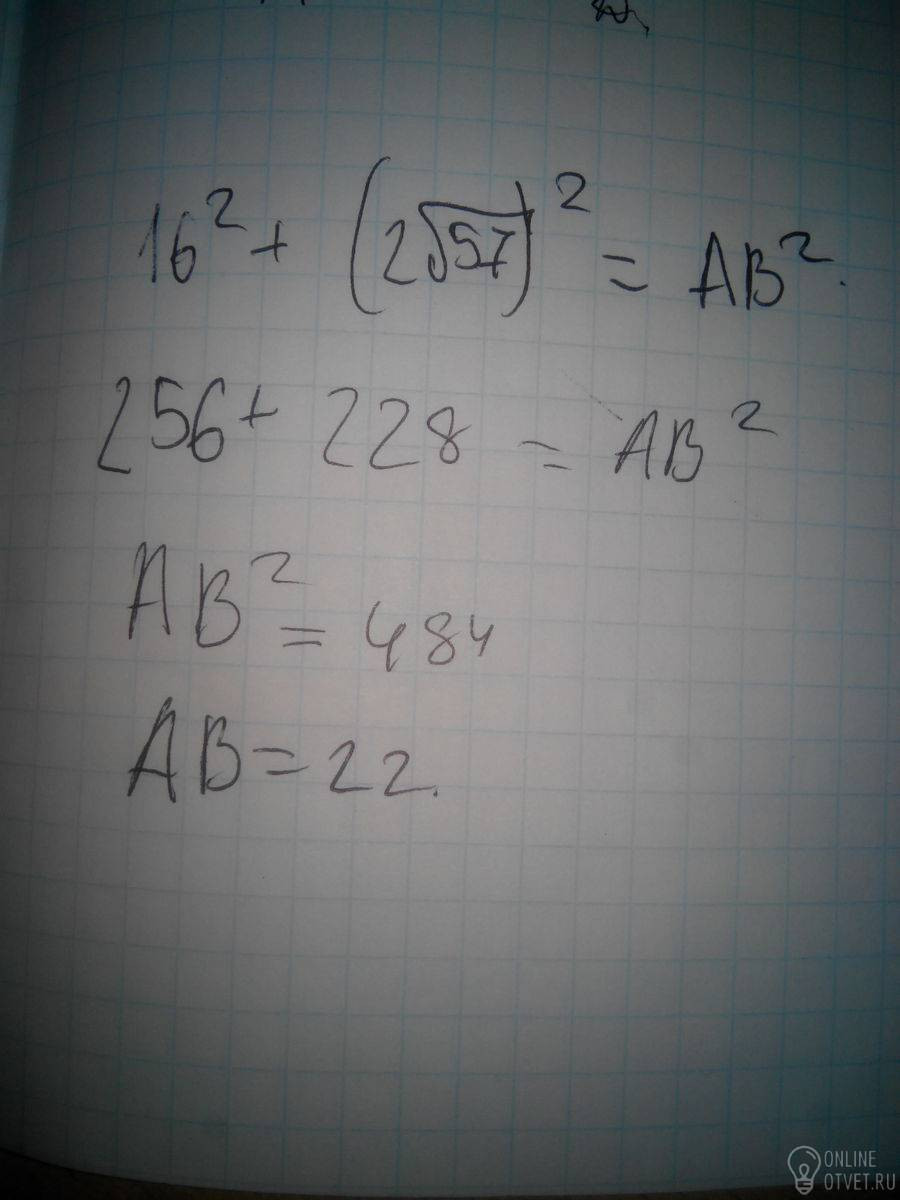 16² + (2√57)² = AB².
256 + 228 = AB²
AB² = 484
AB = 22.
ONLINE
OTVET.RU